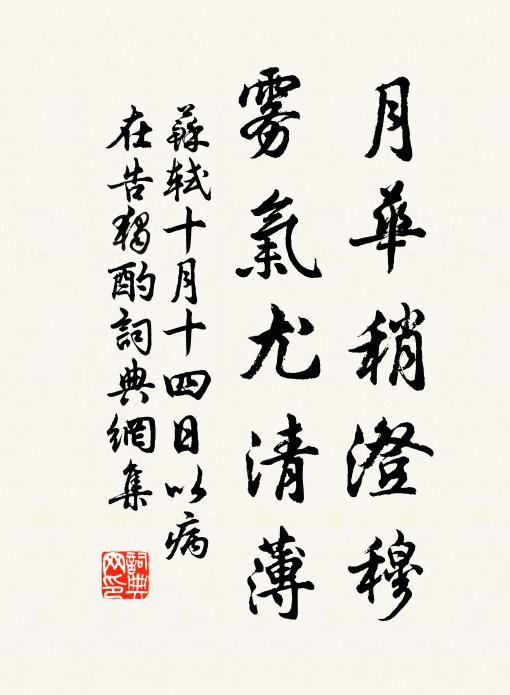 月華稍澄穆
霧氣尤清薄
蘇軾十月十四日以病
在告獨酌詞典網集
詞典
网印